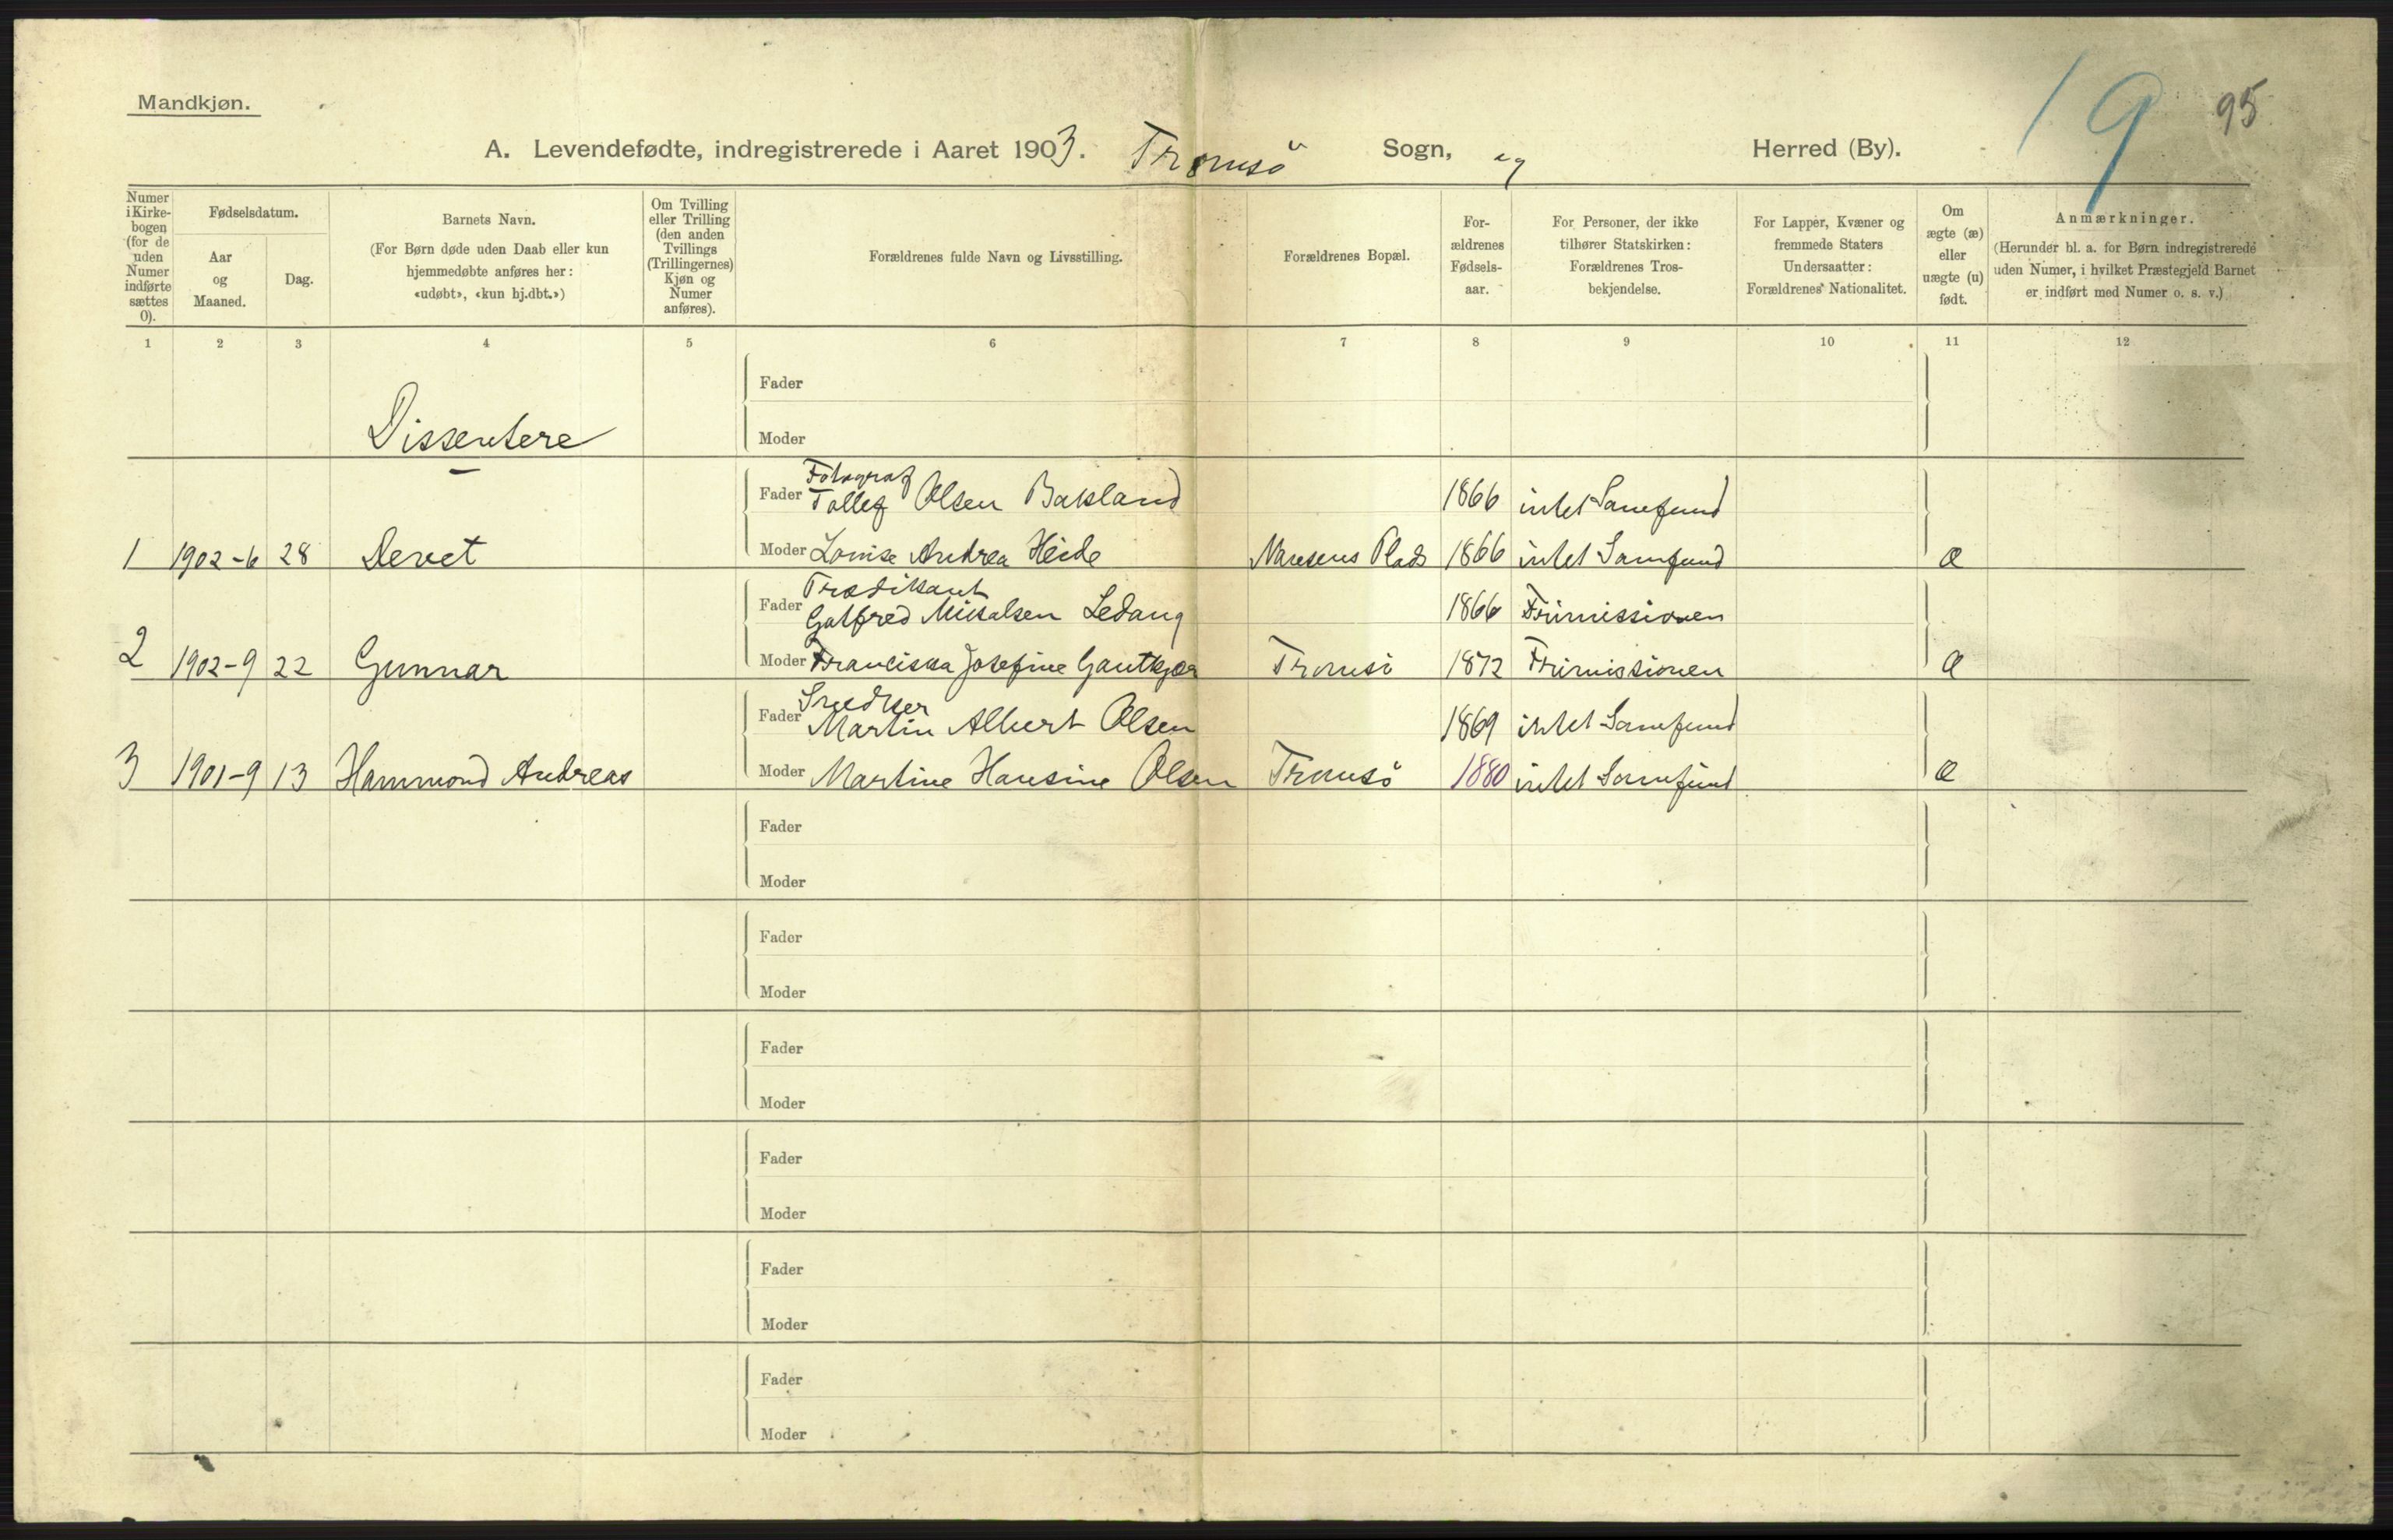 Mandkjøn.
19 95
A. Levendefødte, indregistrerede i Aaret 1903. Tromsö Sogn, Herred (By).
Numer i Kirkebogen (for de uden Numer indførte sættes 0).
Fødselsdatum.
Aar og Maaned.
Dag.
Barnets Navn.
(For Børn døde uden Daab eller kun hjemmedøbte anføres her: «udøbt», «kun hj.dbt.»)
Om Tvilling eller Trilling (den anden Tvillings (Trillingernes) Kjøn og Numer anføres).
Forældrenes fulde Navn og Livsstilling.
Forældrenes Bopæl.
Forældrenes Fødselsaar.
For Personer, der ikke tilhører Statskirken: Forældrenes Trosbekjendelse.
For Lapper, Kvæner og fremmede Staters Undersaatter: Forældrenes Nationalitet.
Om ægte (æ) eller uægte (u) født.
Anmærkninger.
(Herunder bl. a. for Børn indregistrerede uden Numer, i hvilket Præstegjeld Barnet er indført med Numer o. s. v.)
1 2 3 4 5 6 7 8 9 10 11 12
Fader
Dissentere Moder
Fotograf
Fader Tollef Olsen Baksland 1866 intet Samfund
1 1902-6 28 Moder Louise Andrea Heide Plads 1866 intet Samfund æ
Prædikant
Fader Gotfred Mikalsen Ledang 1866 Frimissionen
2 1902-9 22 Gunnar Moder Franciska Josefine Gautkjær Tromsö 1872 Frimissionen æ
Snedker
Fader Martin Albert Olsen 1869 intet Samfund
3 1901-9 13 Hammond Andreas Moder Martine Hansine Olsen Tromsö 1880 intet Samfund æ
Fader
Moder
Fader
Moder
Fader
Moder
Fader
Moder
Fader
Moder
Fader
Moder